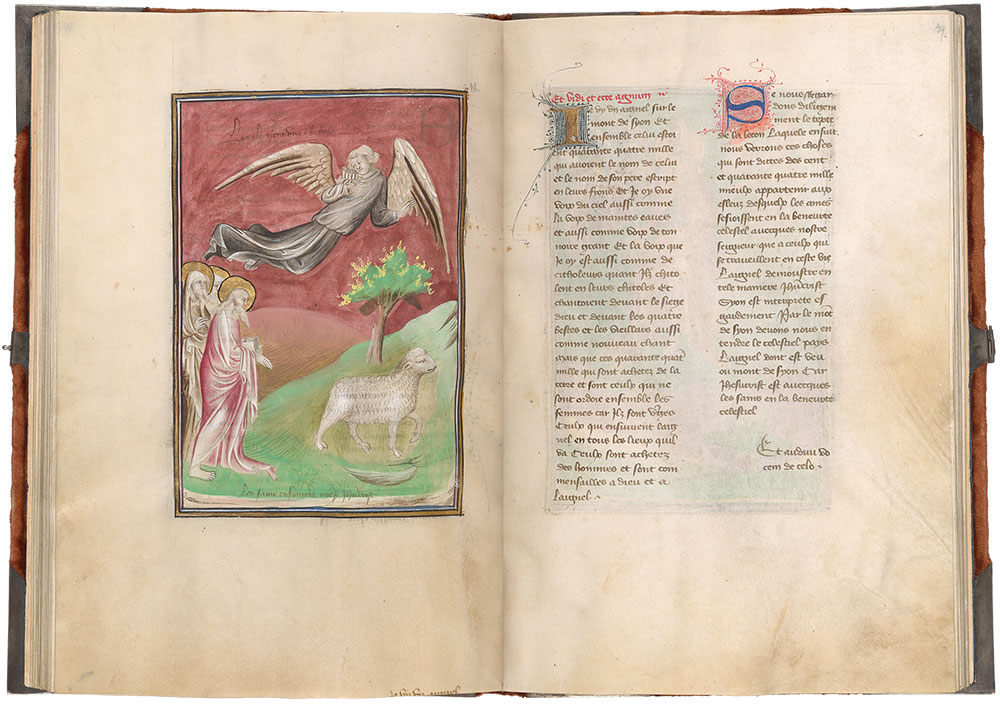 Et vidi et ecce agnum
Je vy un aignel sur le
mont de syon Et
ensemble celui estoi
ent quarante quatre mille
qui avoient le nom de celui
et le nom de son pere escript
en leurs frons Et Je oy une
voix du ciel aussi comme
la voix de maintes eaues
et aussi comme voix de ton
noire grant Et la voix que
Je oy est aussi comme de
citholeurs quant Ilz chito
lent en leurs chitoles Et
chantoient devant le siege
dieu et devant les quatre
bestes et les vieillars aussi
comme nouveau chant
mais que ces quarante quat
mille qui sont achetez de la
terre et sont ceulx qui ne
sont ordoie ensemble les
femmes car Ilz sont vges
Ceulx qui ensuivent laig
nel en tous les lieux quil
va Ceulx sont achetez
des hommes et sont com
mensailles a dieu et a
laignel
Se nous regar
dons diligem
ment le texte
de la lecon laquele ensuit
nous verrons ces choses
qui sont dittes des cent
et quarante quatre mille
mieulx appartenir aux
esleuz desquelx les ames
sesioissent en la beneurte
celestiel avecques nostre
seigneur que a ceulx qui
se traveillent en ceste vie
laignel demonstre en
tele maniere Jhucrist
Syon est interprete es
gardement Par le mot
de syon devons nous en
tendre le celestiel pays
laignel dont est veu
ou mont de syon Car
Jhesucrist est avecques
les sains en la beneurte
celestiel
Et audivi vo
cem de celo